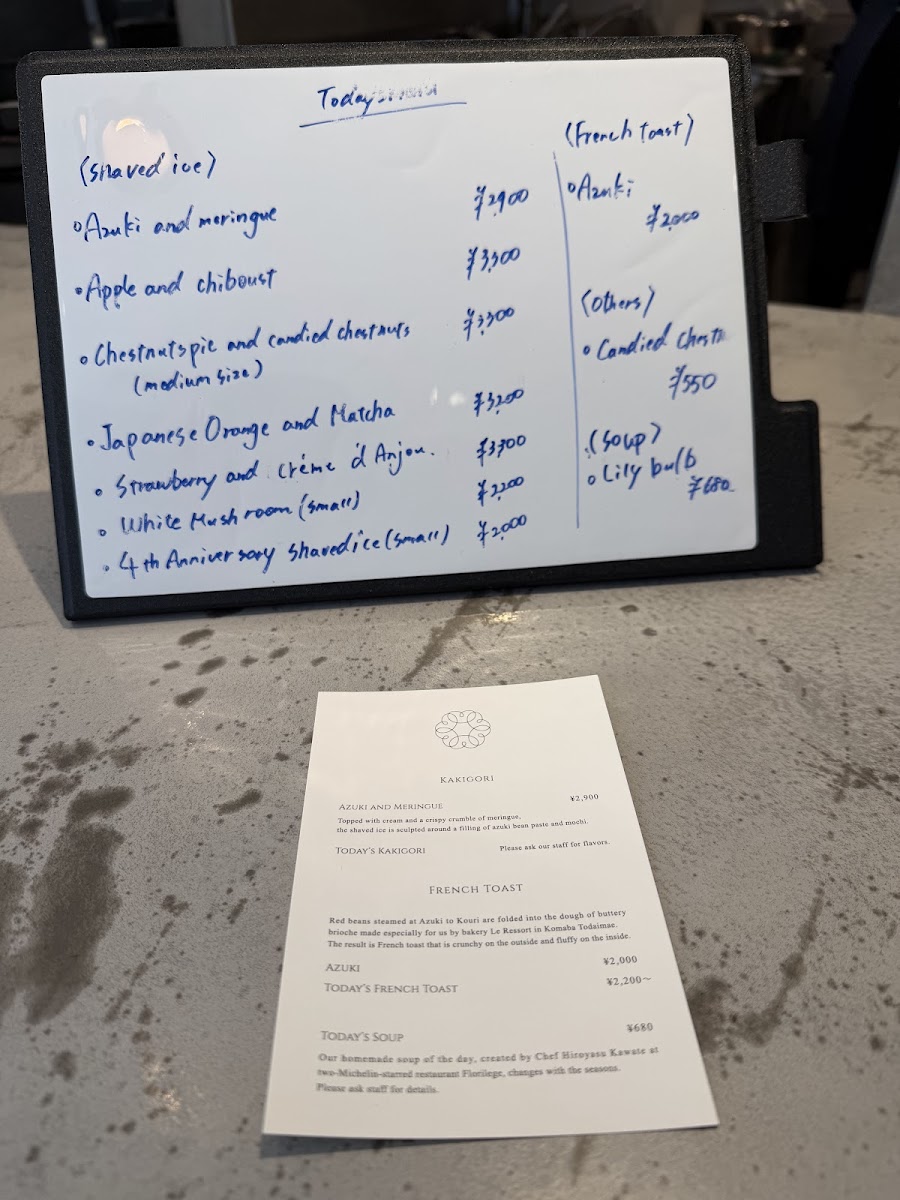 Today's
(shaved ice)
Azuki and meringue ¥2,900
Apple and chiboust ¥3,300
Chestnuts pie and candied chestnuts ¥3,300
(medium size)
Japanese Orange and Matcha ¥3,200
Strawberry and créme d'Anjou. ¥3,300
White Mushroom (small) ¥2,200
4th Anniversary shaved ice (small) ¥2,000
(French toast)
Azuki
¥2,000
(Others)
Candied Chestn
¥550
(Soup)
Lily bulb
¥680
KAKIGORI
AZUKI AND MERINGUE ¥2,900
Topped with cream and a crispy crumble of meringue,
the shaved ice is sculpted around a filling of azuki bean paste and mochi.
TODAY'S KAKIGORI Please ask our staff for flavors.
FRENCH TOAST
Red beans steamed at Azuki to Kouri are folded into the dough of buttery
brioche made especially for us by bakery Le Ressort in Komaba Todaimae.
The result is French toast that is crunchy on the outside and fluffy on the inside.
AZUKI ¥2,000
TODAY'S FRENCH TOAST ¥2,200~
TODAY'S SOUP ¥680
Our homemade soup of the day, created by Chef Hiroyasu Kawate at
two-Michelin-starred restaurant Florilege, changes with the seasons.
Please ask staff for details.